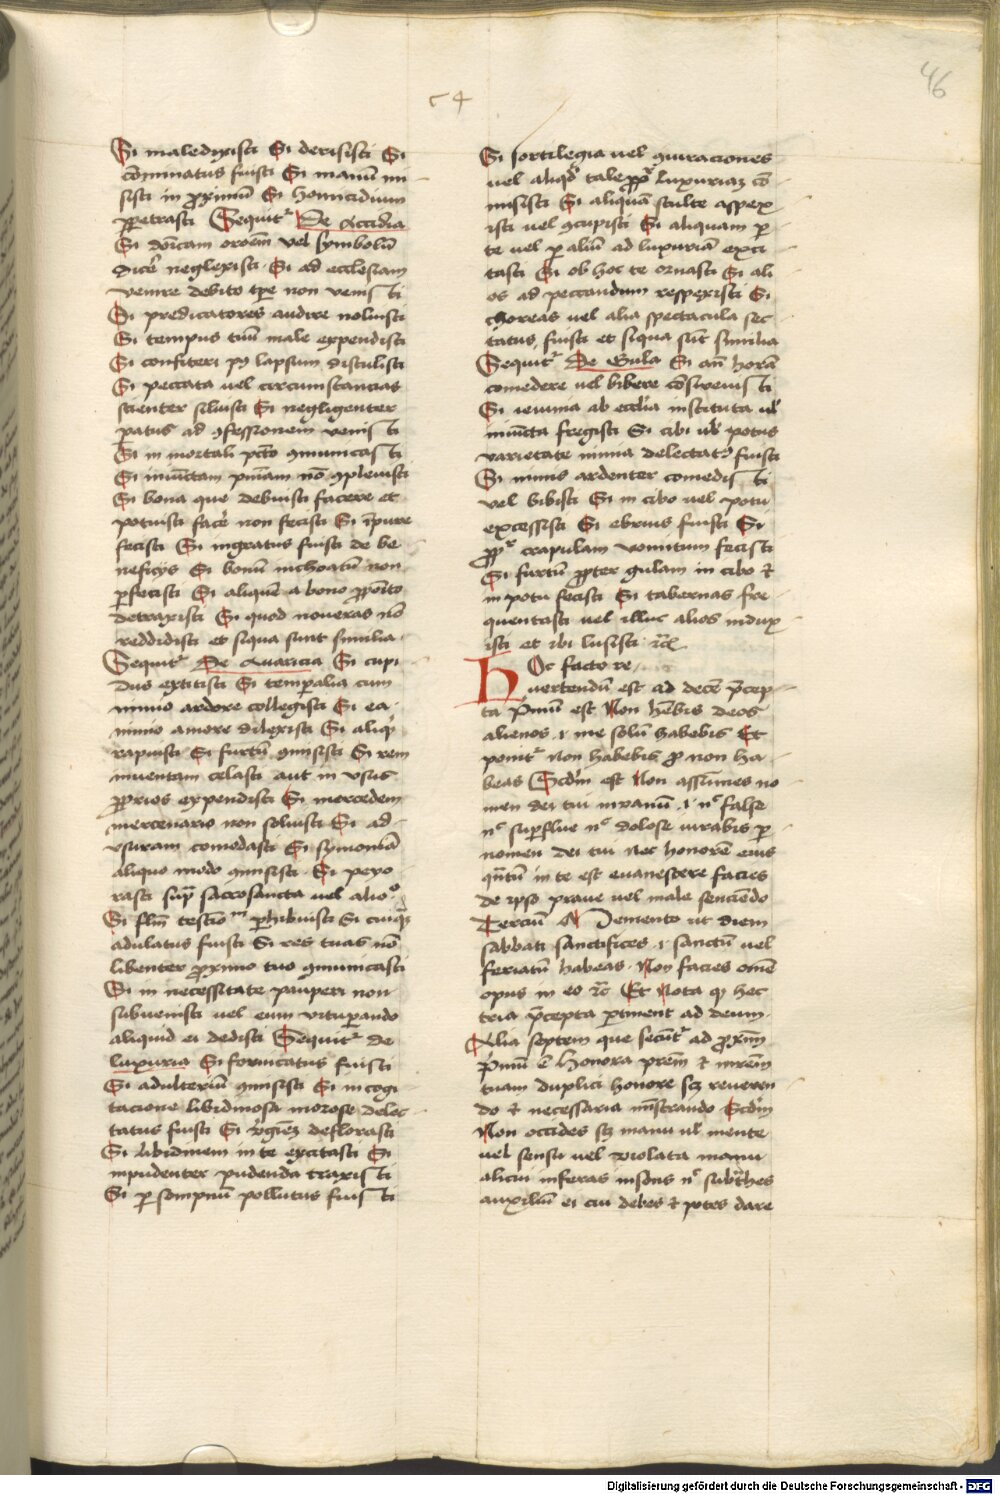 46
54
Si maledixisti Si derisisti Si
cōminatus fuisti Si manū mi
sisti in ꝓximū Si homicidium
ꝑpetrasti Sequit᷑ De Accidia
Si dōicam or̄oēm vel symbolū
dicē neglexisti Si ad ecclesiam
venire debito tꝑe non venisti
Si predicatores audire noluisti
Si tempus tuū male expendisti
Si confiteri pꝰ lapsum distulisti
Si peccata vel circumstancias
scienter siluisti Si negligenter
ꝑatus ad ꝯfessionem venisti
Si in mortali pctō ꝯmunicasti
Si iniūctam pn̄iam nō ꝯpleuisti
Si bona que debuisti facere et
potuisti facē non fecisti Si īpure
fecisti Si ingratus fuisti de be
neficijs Si bonū inchoatū non
ꝑfecisti Si aliquē a bono ꝓpōito
detraxisti Si quod noueras nō
reddidisti et siqua sunt similia
Sequit᷑ De Auaricia Si cupi
dus extitisti Si temꝑalia cum
nimio ardore collegisti Si ea
nimio amore dilexisti Si aliqḋ
rapuisti Si furtū ꝯmisisti Si rem
inuentam celasti aut in vsus
ꝓprios expendisti Si mercedem
mercenario non soluisti Si ad
vsuram comodasti Si symoniā
aliquo modo ꝯmisisti Si peyo
rasti sup̄ sacrosancta vel alio
Si flm̄ testīo ꝑhibuisti Si cuiqꝫ
adulatus fuisti Si res tuas nō
libenter ꝓximo tuo ꝯmunicasti
Si in necessitate pauperi non
subuenisti vel eum vituꝑando
aliquid ei dedisti Sequit᷑ de
luxuria Si fornicatus fuisti
Si adulteriū ꝯmisisti Si in cogi
tacione libidinosa morose delec
tatus fuisti Si v̓gīeꝫ deflorasti
Si libidinem in te excitasti Si
inpudenter pudenda traxisti
Si ꝑ sompnū pollutus fuisti
Si sortilegia vel ꝯiuraciones
vel aliqḋ tale ꝓpt̓ luxuriaꝫ cō
misisti Si aliquā stulte aspex
isti vel ꝯcupisti Si aliquam ꝑ
te vel ꝑ aliū ad luxuriā exci
tasti Si ob hoc te ornasti Si ali
os ad peccandum respexisti Si
choreas vel alia spectacula sec
tatus fuisti et siqua sūt similia
Sequit᷑ De Gula Si an̄ horā
comedere vel bibere cōsueuisti
Si ieiunia ab eccl̄ia instituta ul̓
iniūcta fregisti Si cibi ul̓ potus
varietate nimia delectatꝰ fuisti
Si nimis ardenter comedisti
vel bibisti Si in cibo vel potu
excessisti Si ebrius fuisti Si
ꝓpt̓ crapulam vomitum fecisti
Si furtū ꝓpter gulam in cibo ⁊
in potu fecisti Si tabernas fre
quentasti vel illuc alios indux
isti et ibi lusisti ⁊c̄
Hoc facto re
uertendū est ad decē p̄cep
ta Primū est Non hēbis deos
alienos .i. me solū habebis Et
ponit᷑ non habebis ꝓ non ha
beas Scdm̄ est Non assumes no
men dei tui in vanū .i. nᶜ false
nᶜ suꝑflue nᶜ dolose iurabis ꝑ
nomen dei tui nec honorē eius
qn̄tū in te est euanescere facies
de ipso praue vel male senciēdo
Terciū Memento ut diem
sabbati sanctifices .i. sanctū vel
feriatū habeas Non facies om̄e
opus in eo ⁊c̄ Et Nota qꝫ hec
tria p̄cepta ꝑtinent ad deum
Alia septem que secūt᷑ ad ꝓximū
Primū ē Honora prēm ⁊ mrēm
tuam duplici honore scꝫ reueren
do ⁊ necessaria mīstrando Scdm̄
Non occides scꝫ manu ul̓ mente
vel sensu vel violata manu
alicui inferas insons nᶜ subt̓hes
auxiliū ei cui debes ⁊ potes dare
Digitalisierung gefördert durch die Deutsche Forschungsgemeinschaft - DFG